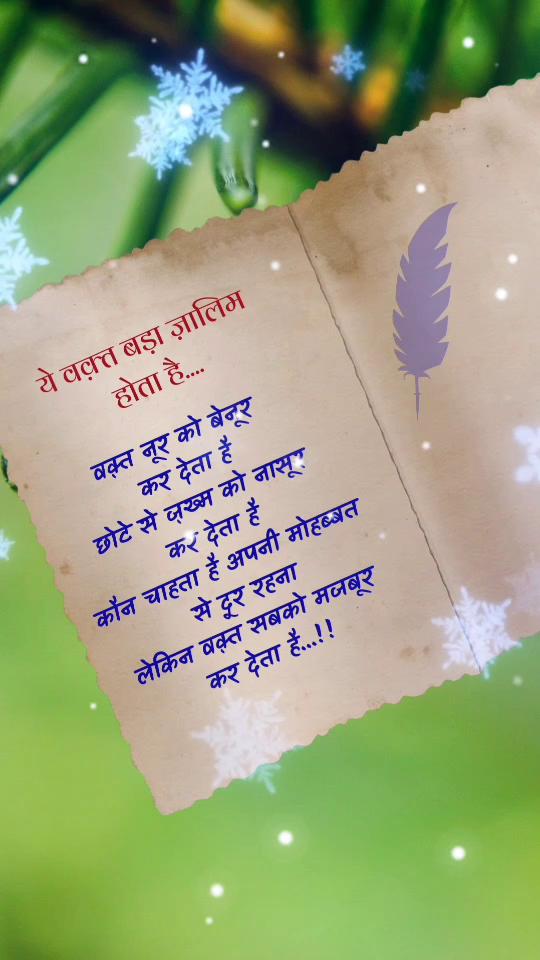 ये वक़्त बड़ा ज़ालिम
होता है....
वक़्त नूर को बेनूर
कर देता है
छोटे से ज़ख्म को नासूर
कर देता है
कौन चाहता है अपनी मोहब्बत
से दूर रहना
लेकिन वक़्त सबको मजबूर
कर देता है...!!